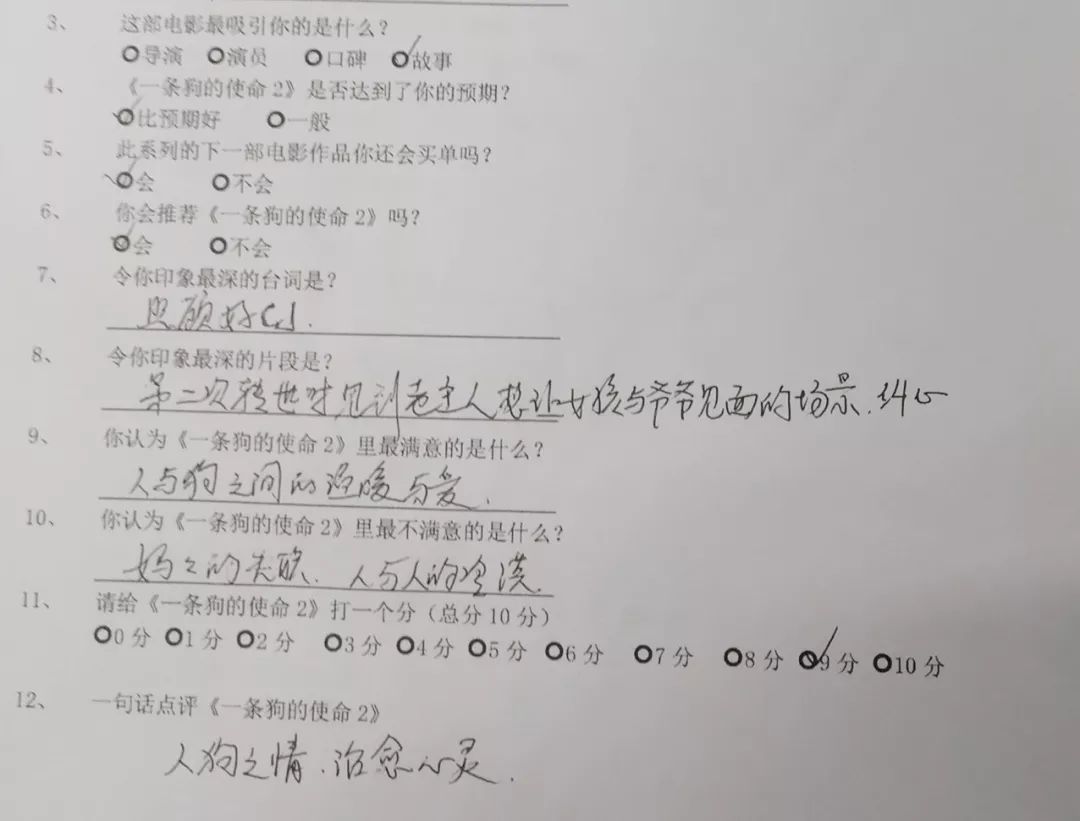 3、 这部电影最吸引你的是什么？
导演 演员 口碑 故事
4、 《一条狗的使命 2》是否达到了你的预期？
比预期好 一般
5、 此系列的下一部电影作品你还会买单吗？
会 不会
6、 你会推荐《一条狗的使命 2》吗？
会 不会
7、 令你印象最深的台词是？
照顾好CJ.
8、 令你印象最深的片段是？
第二次转世时见到老主人想让女孩与爷爷见面的场景.纠心
9、 你认为《一条狗的使命 2》里最满意的是什么？
人与狗之间的温暖与爱.
10、 你认为《一条狗的使命 2》里最不满意的是什么？
妈々的失职. 人与人的冷漠.
11、 请给《一条狗的使命 2》打一个分（总分 10 分）
0 分 1 分 2 分 3 分 4 分 5 分 6 分 7 分 8 分 9 分 10 分
12、 一句话点评《一条狗的使命 2》
人狗之情.治愈心灵.